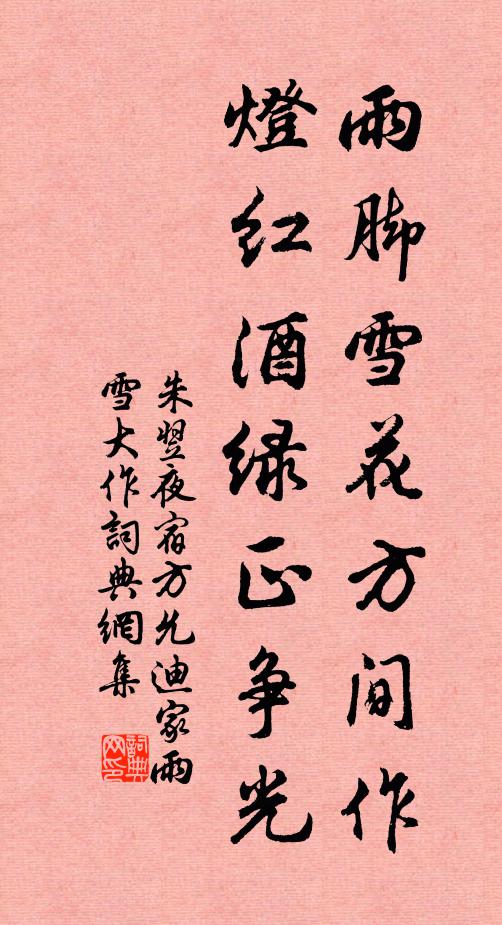 雨脚雪花方间作
燈红酒绿正争光
朱翌夜宿方允迪家雨
雪大作詞典網集
詞典
网印